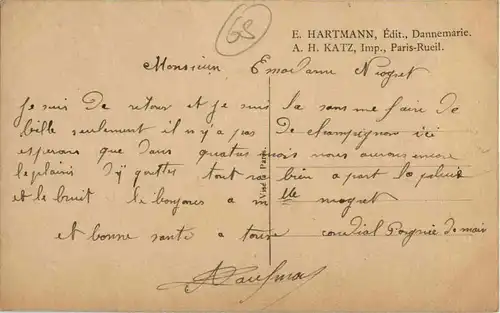 68
E. HARTMANN, Édit., Dannemarie.
A. H. KATZ, Imp., Paris-Rueil.
Monsieur E madame Niogret
Je suis De retour et je suis la sans me faire de
bille seulement il n'y a pas De champignon ici
esperons que dans quatre mois nous aurons encore
le plaisir d'y goutter tout va bien a part la pluie
et le bruit le bonjours a mlle niogret
et bonne santé a tous cordial Poignée de main
Visé Paris.